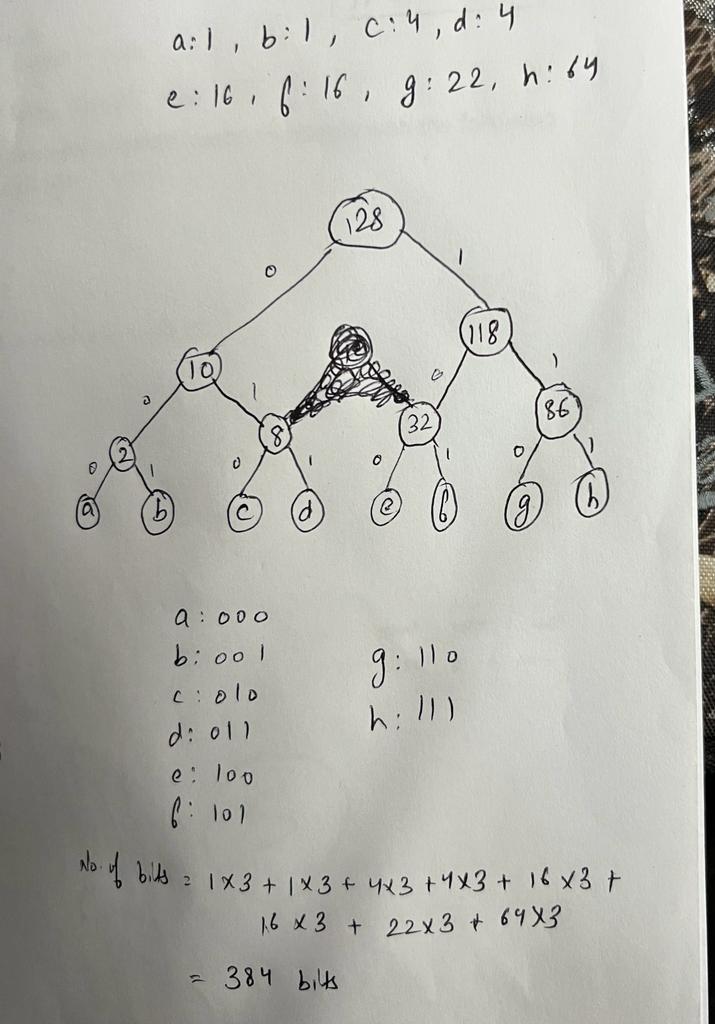 a:1 , b:1 , c:4 , d:4
e:16 , f:16 , g:22, h:64
128
0 1
10 118
0 1 0 1
2 8 32 86
0 1 0 1 0 1 0 1
a b c d e f g h
a : 000
b: 001
c : 010
d: 011
e: 100
f: 101
g: 110
h: 111
No. of bits = 1×3 + 1×3 + 4×3 + 4×3 + 16×3 +
16×3 + 22×3 + 64×3
= 384 bits